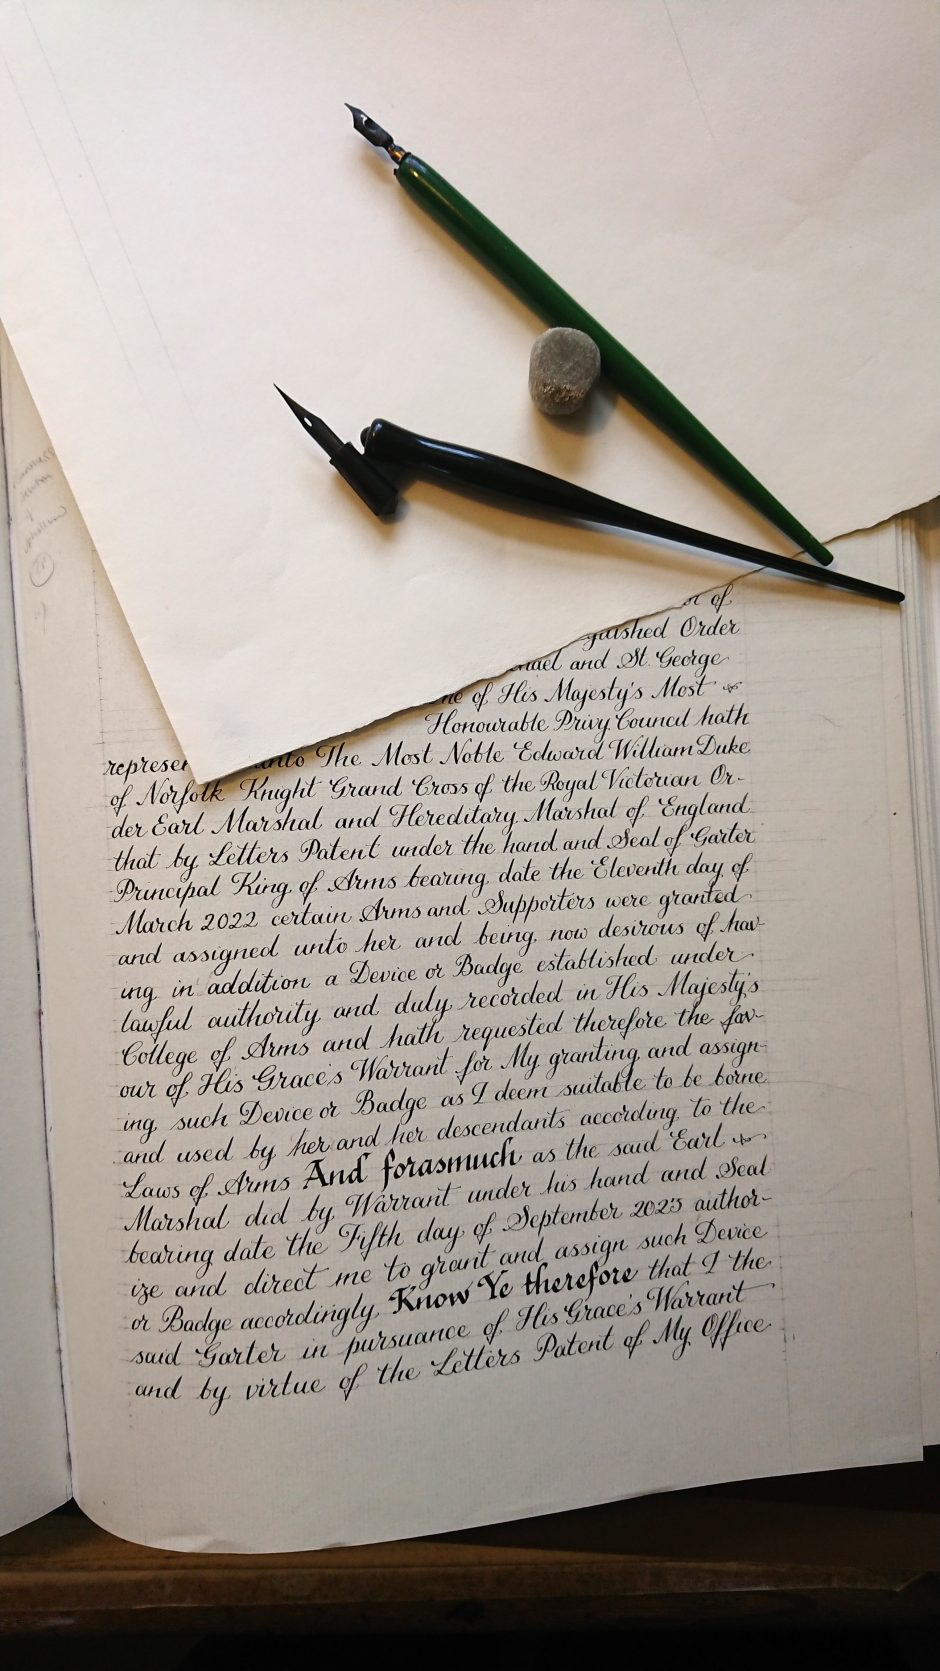 of
Order
and St. George
of His Majesty's Most
Honourable Privy Council hath
unto The Most Noble Edward William Duke
of Norfolk Knight Grand Cross of the Royal Victorian Or-
der Earl Marshal and Hereditary Marshal of England
that by Letters Patent under the hand and Seal of Garter
Principal King of Arms bearing date the Eleventh day of
March 2022 certain Arms and Supporters were granted
and assigned unto her and being now desirous of hav-
ing in addition a Device or Badge established under
lawful authority and duly recorded in His Majesty's
College of Arms and hath requested therefore the fav-
our of His Grace's Warrant for My granting and assign-
ing such Device or Badge as I deem suitable to be borne
and used by her and her descendants according to the
Laws of Arms And forasmuch as the said Earl
Marshal did by Warrant under his hand and Seal
bearing date the Fifth day of September 2023 author-
ize and direct me to grant and assign such Device
or Badge accordingly Know Ye therefore that I the
said Garter in pursuance of His Grace's Warrant
and by virtue of the Letters Patent of My Office